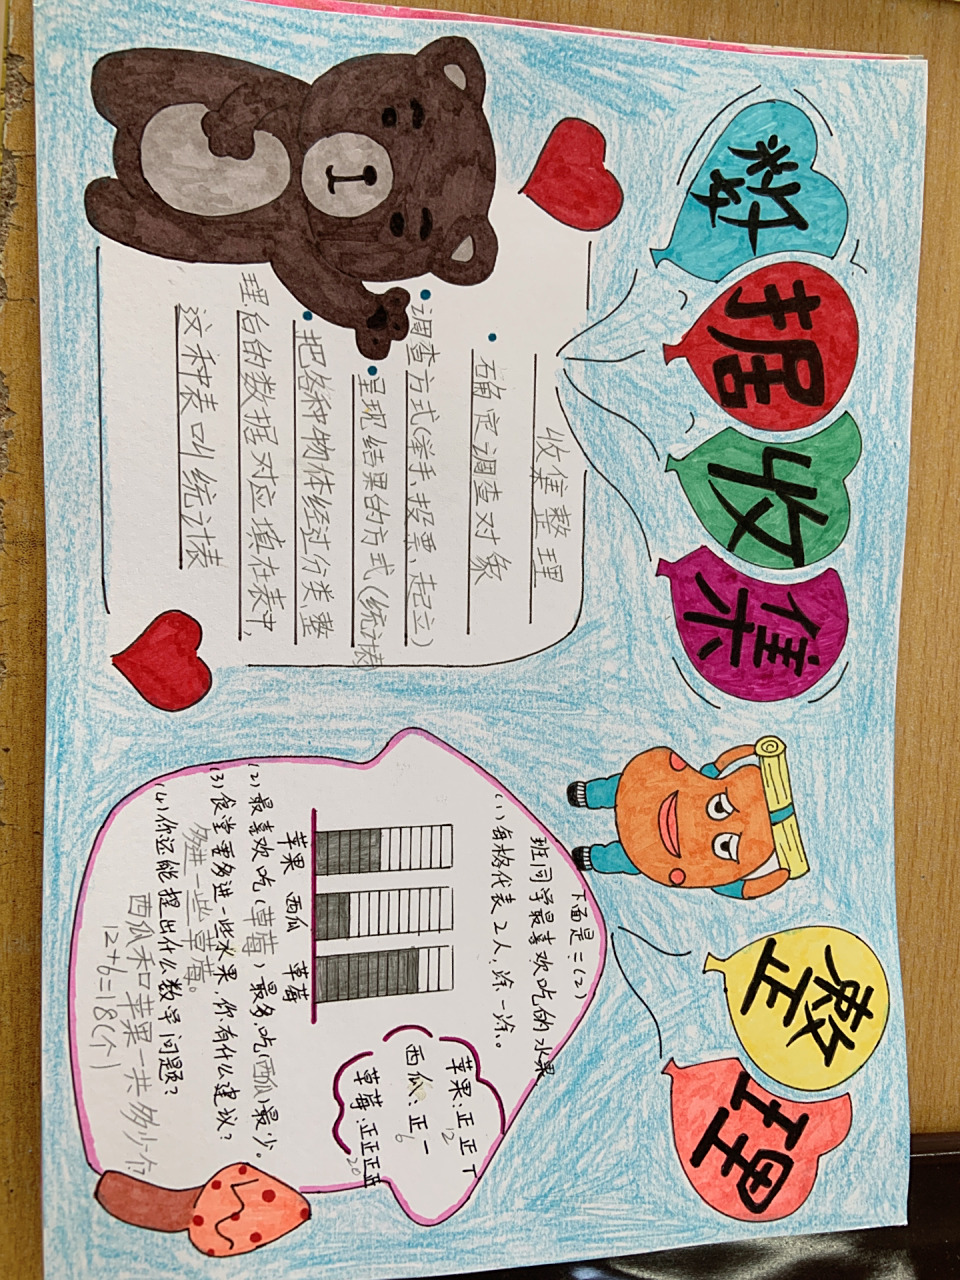 数据收集整理
收集整理
确定调查对象
调查方式(举手、投票、起立)
呈现结果的方式(统计表
把各种物体经过分类、整
理后的数据对应填在表中,
这种表叫统计表
下面是二(2)
班同学最喜欢吃的水果
(1)每格代表2人,涂一涂。
苹果:正正丅
12
西瓜:正一
6
草莓:正正正正
20
苹果 西瓜 草莓
(2)最喜欢吃(草莓),最多,吃(西瓜)最少。
(3)食堂要多进一些水果,你有什么建议?
多进一些草莓。
(4)你还能提出什么数学问题?
西瓜和苹果一共多少个?
12+6=18(个)